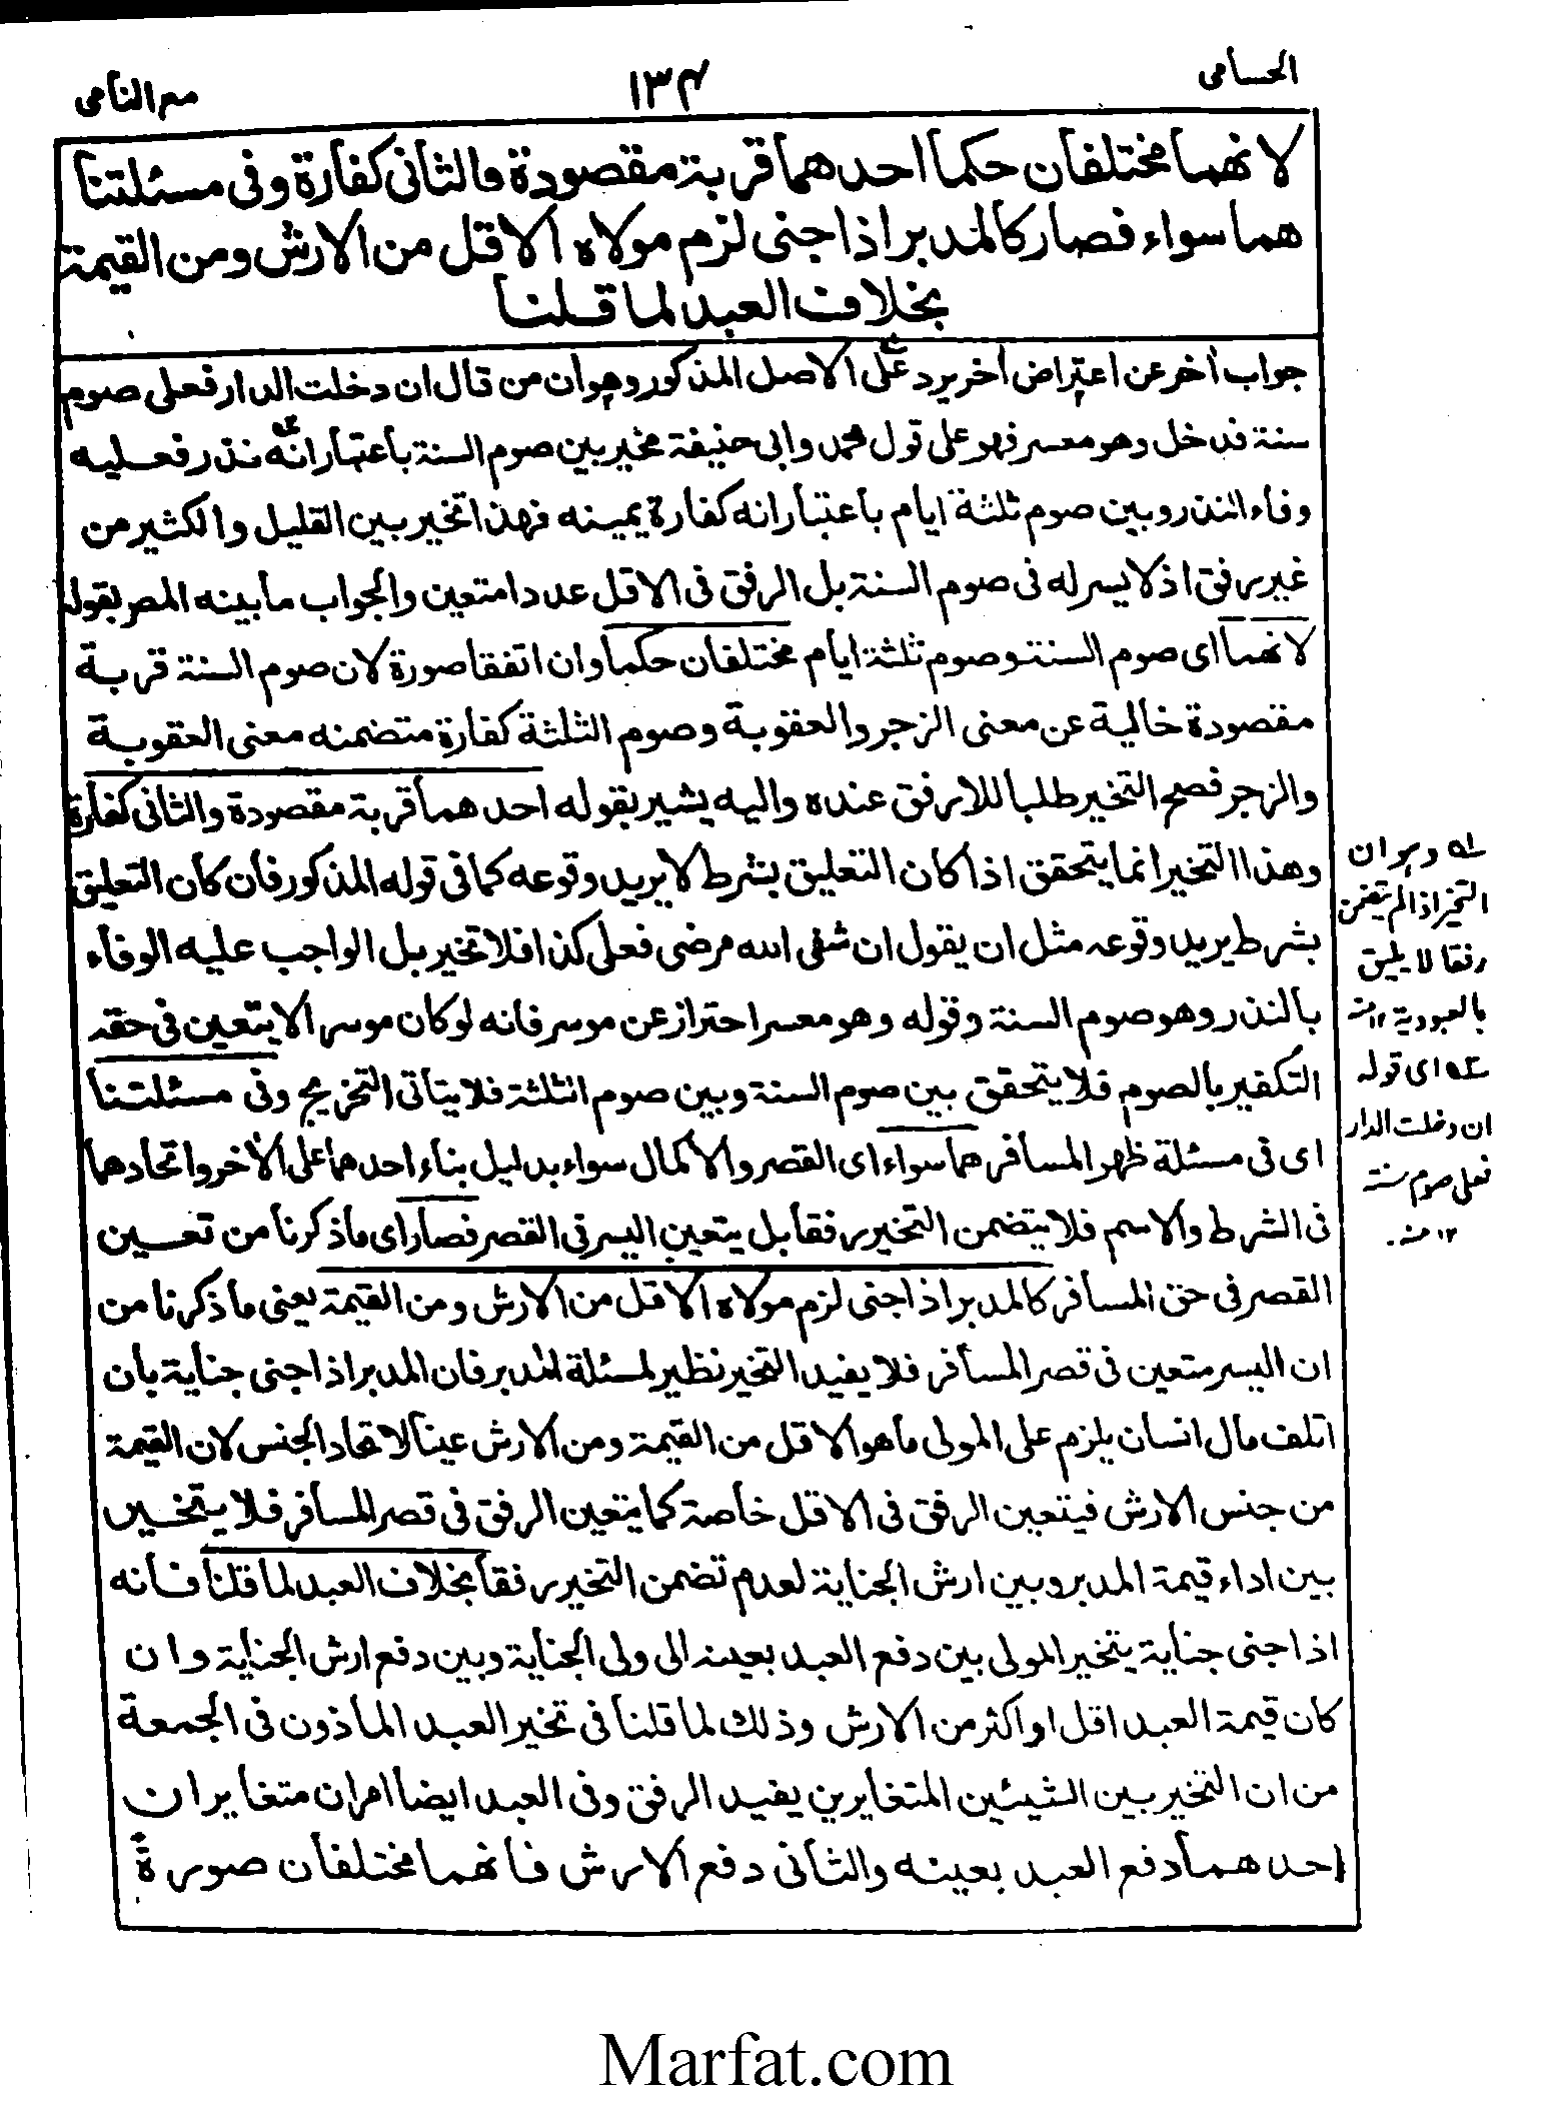 الحسامی
۱۳۴
مع النامی
لانهما مختلفان حكما احدهما قربة مقصودة والثانى كفارة وفى مسئلتنا
هما سواء فصار كالمدبر اذا جنى لزم مولاه الاقل من الارش ومن القيمة
بخلاف العبد لما قلنا
جواب أخر عن اعتراض أخر يرد على الاصل المذكور وهو ان من قال ان دخلت الدار فعلى صوم
سنة فدخل وهو معسر فهو على قول محمد وابى حنيفة مخير بين صوم السنة باعتبار انه نذر فعليه
وفاء النذر وبين صوم ثلثة ايام باعتبار انه كفارة يمينه فهذا تخيير بين القليل والكثير من
غير رفق اذ لا يسر له فى صوم السنة بل الرفق فى الاقل عددا متعين والجواب ما بينه المصر بقوله
لانهما اى صوم السنة وصوم ثلثة ايام مختلفان حكما وان اتفقا صورة لان صوم السنة قربة
مقصودة خالية عن معنى الزجر والعقوبة وصوم الثلثة كفارة متضمنه معنى العقوبة
والزجر فصح التخير طلبا للارفق عنده واليه يشير بقوله احدهما قربة مقصودة والثانى كفارة
وهذا التخير انما يتحقق اذا كان التعليق بشرط لا يريد وقوعه كما فى قوله المذكور فان كان التعليق
بشرط يريد وقوعه مثل ان يقول ان شفى الله مرضى فعلى كذا فلا تخير بل الواجب عليه الوفاء
بالنذر وهو صوم السنة وقوله وهو معسر احتراز عن موسر فانه لو كان موسرا لا يتعين فى حقه
التكفير بالصوم فلا يتحقق بين صوم السنة وبين صوم الثلثة فلا يتاتى التخريج وفى مسئلتنا
اى فى مسئلة ظهر المسافر هما سواء اى القصر والاكمال سواء بدليل بناء احدهما على الأخر واتحادهما
فى الشرط والاسم فلا يتضمن التخيير رفقا بل يتعين اليسر فى القصر فصار اى ما ذكرنا من تعيين
القصر فى حق المسافر كالمدبر اذا جنى لزم مولاه الاقل من الارش ومن القيمة يعنى ما ذكرنا من
ان اليسر متعين فى قصر المسافر فلا يفيد التخير نظير لمسئلة المدبر فان المدبر اذا جنى جناية بان
اتلف مال انسان يلزم على المولى ما هو الاقل من القيمة ومن الارش عينا لاتحاد الجنس لان القيمة
من جنس الارش فيتعين الرفق فى الاقل خاصة كما يتعين الرفق فى قصر المسافر فلا يتخير
بين اداء قيمة المدبر وبين ارش الجناية لعدم تضمن التخيير رفقا بخلاف العبد لما قلنا فانه
اذا جنى جناية يتخير المولى بين دفع العبد بعينه الى ولى الجناية وبين دفع ارش الجناية وان
كان قيمة العبد اقل او اكثر من الارش وذلك لما قلنا فى تخير العبد الماذون فى الجمعة
من ان التخير بين الشيئين المتغايرين يفيد الرفق وفى العبد ايضا امران متغايران
احدهما دفع العبد بعينه والثانى دفع الارش فانهما مختلفان صورة
له وہو ان
التخير اذا لم يتضمن
رفقا لا يليق
بالعبودية ۱۲ منہ
۲ہ ای قوله
ان دخلت الدار
فعلى صوم سنة
۱۲ منہ
Marfat.com